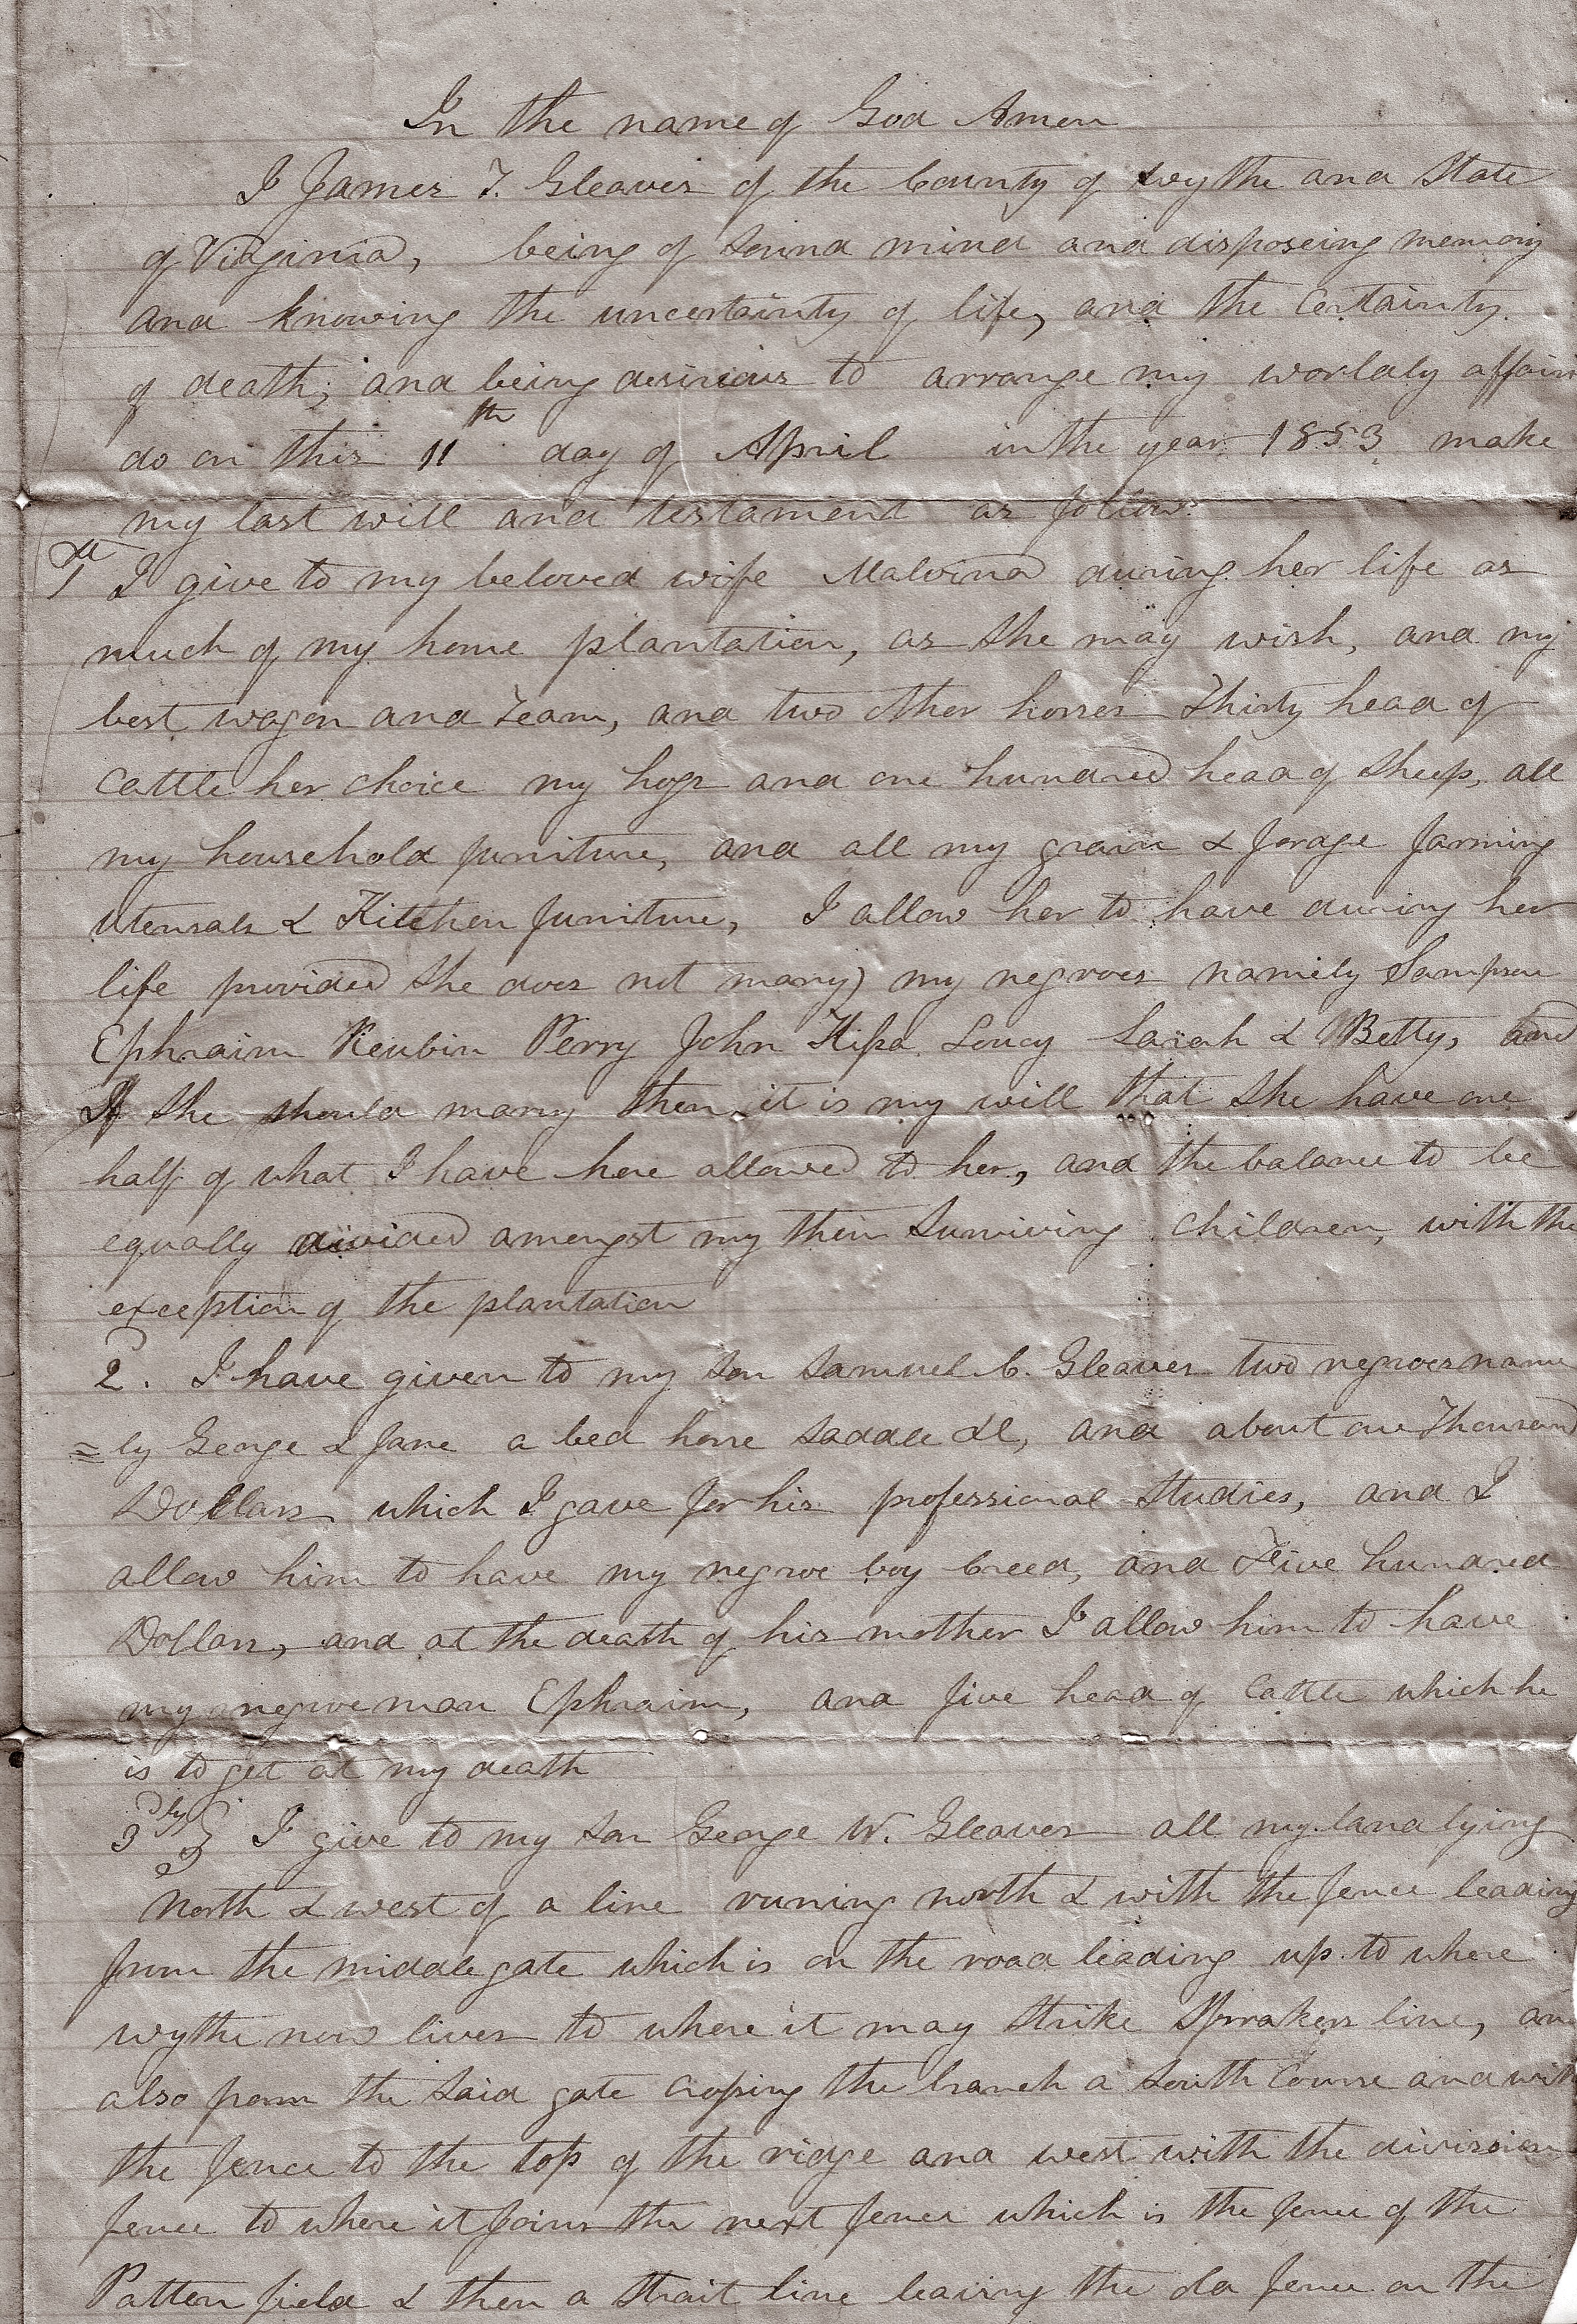 In the name of God Amen
I James T. Gleaves of the County of Wythe and State
of Virginia, being of sound mind and disposeing memory
and knowing the uncertainty of life, and the certainty
of death; and being desirious to arrange my worldly affairs
do on this 11th day of April in the year 1853 make
my last will and testament as follows
1st I give to my beloved wife Malvina during her life as
much of my home plantation, as she may wish, and my
best wagon and Team, and two other horses Thirty head of
Cattle her choice my hogs and one hundred head of sheep, all
my household furniture, and all my grain & forage farming
utensals & Kitchen furniture, I allow her to have during her
life provided she does not marry) my negroes namely Sampson
Ephraim Reubin Perry John Loucy Sarah & Betty, and
If she should marry then it is my will that she have one
half of what I have here allowed to her, and the balance to be
equally divided amongst my then surviving children, with the
exception of the plantation
2. I have given to my son Samuel C. Gleaves two negroes name
=ly George & Jane a bed horse saddle &c, and about one Thousand
Dollars which I gave for his professional studies, and I
allow him to have my negroe boy Creed, and Five hundred
Dollars, and at the death of his mother I allow him to have
my negroe man Ephraim, and five head of Cattle which he
is to get at my death
3dly I give to my son George W. Gleaves all my land lying
North & west of a line runing north & with the fence leading
from the middle gate which is on the road leading up to where
Wythe now lives to where it may strike Sprakers line, an
also from the said gate crossing the branch a south Course and with
the fence to the top of the ridge and west with the division
fence to where it Joins the next fence which is the fence of the
Patton field & then a strait line leaving the fence on the